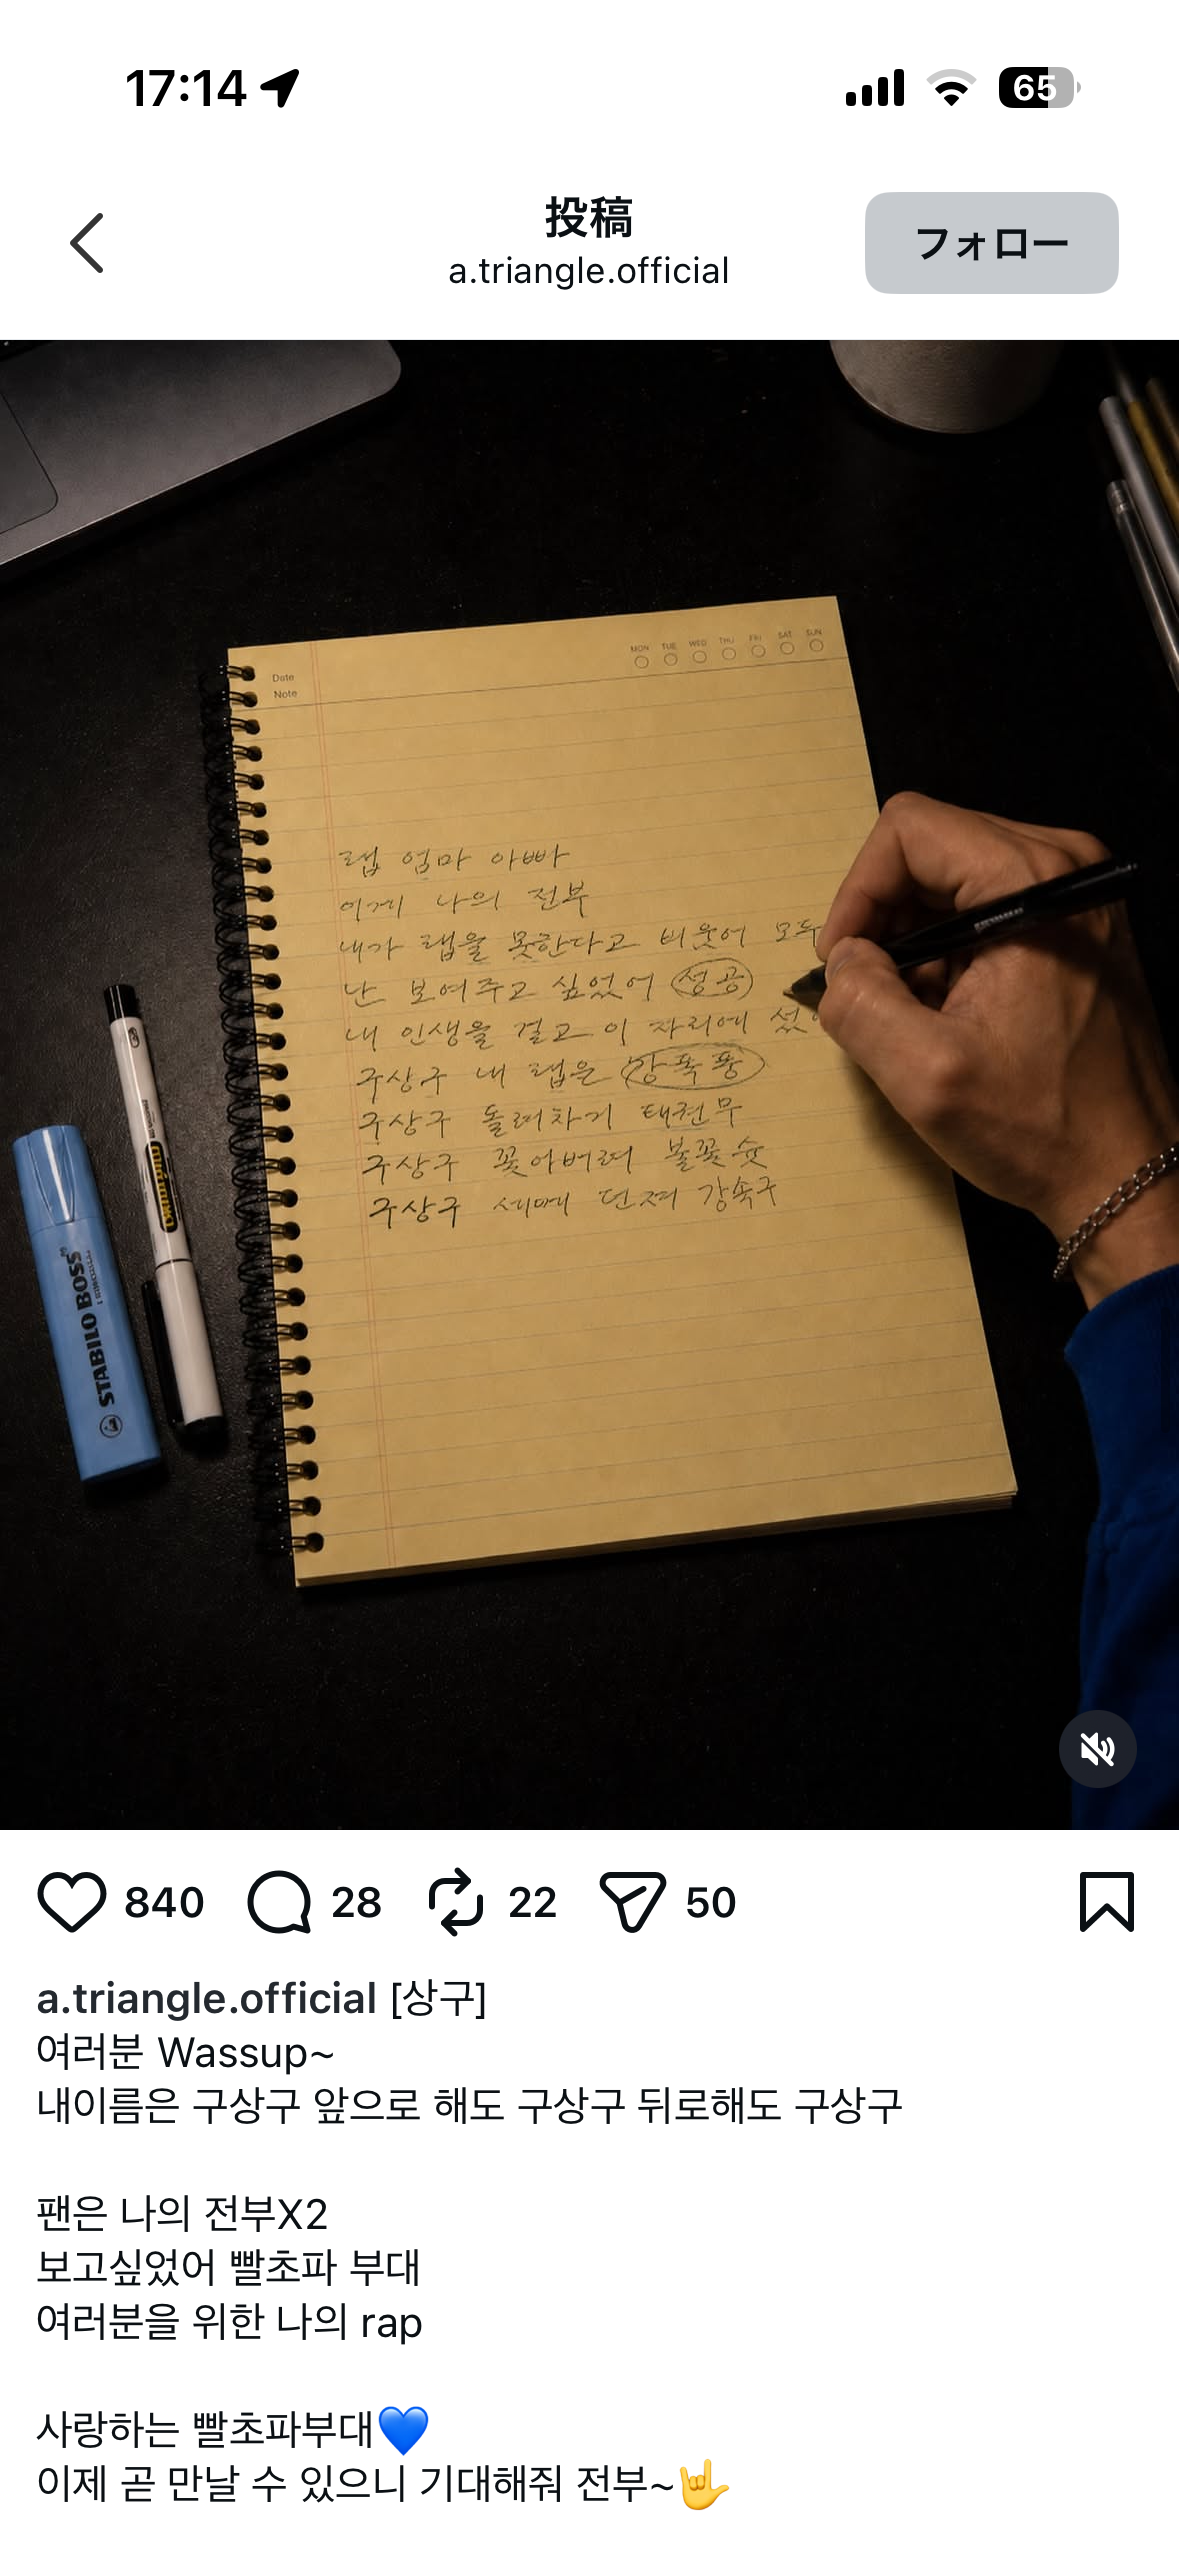 17:14
65
投稿
a.triangle.official
フォロー
Date
Note
MON TUE WED THU FRI SAT SUN
랩 엄마 아빠
이게 나의 전부
내가 랩을 못한다고 비웃어 모두
난 보여주고 싶었어 성공
내 인생을 걸고 이 자리에 섰
구상구 내 랩은 강폭풍
구상구 돌려차기 태권무
구상구 꽃아버려 불꽃슛
구상구 세메 던져 강속구
STABILO BOSS
840
28
22
50
a.triangle.official [상구]
여러분 Wassup~
내이름은 구상구 앞으로 해도 구상구 뒤로해도 구상구
팬은 나의 전부X2
보고싶었어 빨초파 부대
여러분을 위한 나의 rap
사랑하는 빨초파부대💙
이제 곧 만날 수 있으니 기대해줘 전부~🤟